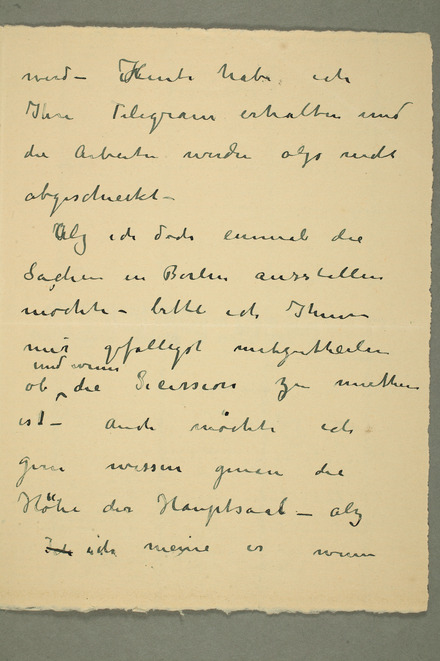 wird – Heute habe ich
Ihre Telegram erhalten und
die Arbeiten werden also nicht
abgeschickt –
Als ich doch einmal die
Sachen in Berlin ausstellen
möchte – bitte ich Ihnen
mir gefälligst mitzutheilen
und wenn
ob die Secession zu miethen
ist – Auch möchte ich
gern wissen genau die
Höhe der Hauptsaal – als
ich meine es wenn